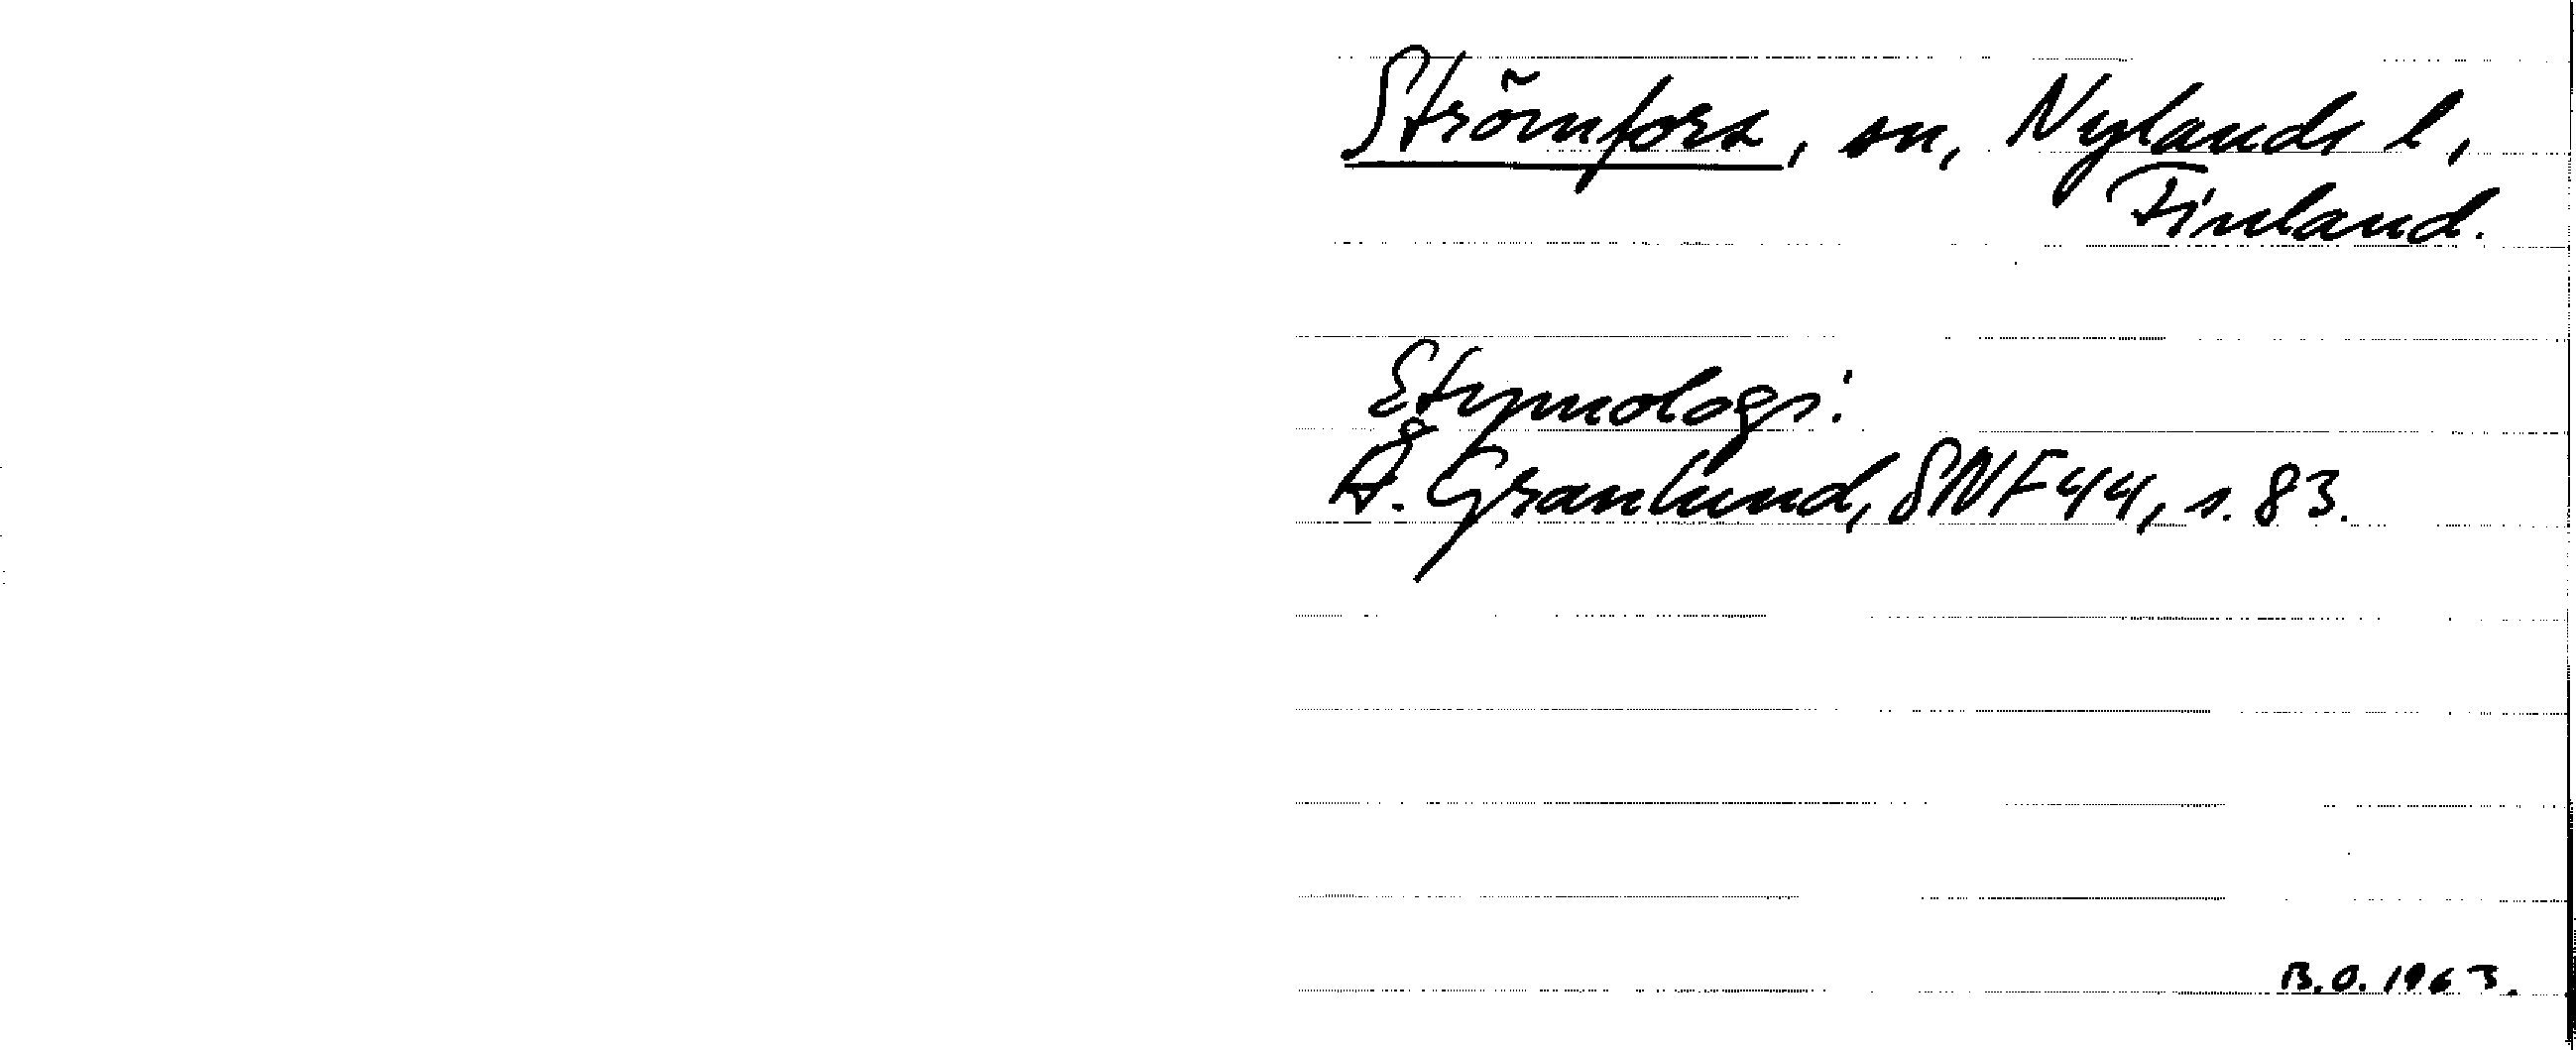 Strömfors, sn, Nylands l,
Finland.
Etymologi:
Å. Granlund, SNF 44, s. 83.
B.O. 1963.